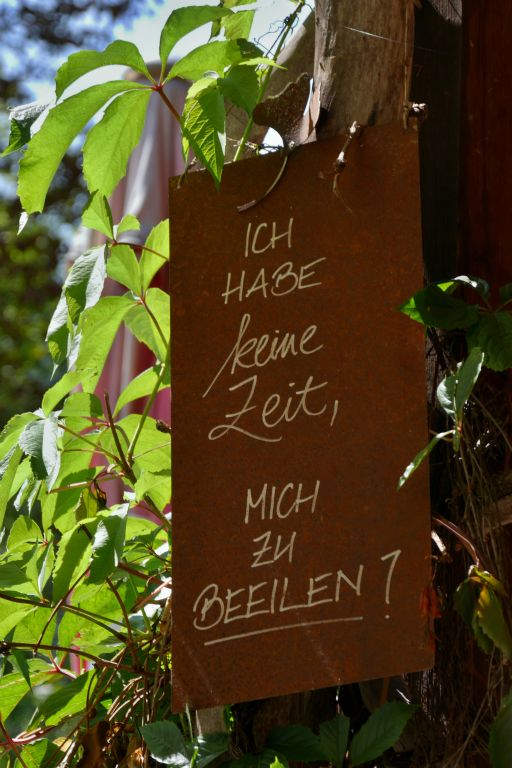 ICH
HABE
keine
Zeit,
MICH
ZU
BEEILEN?